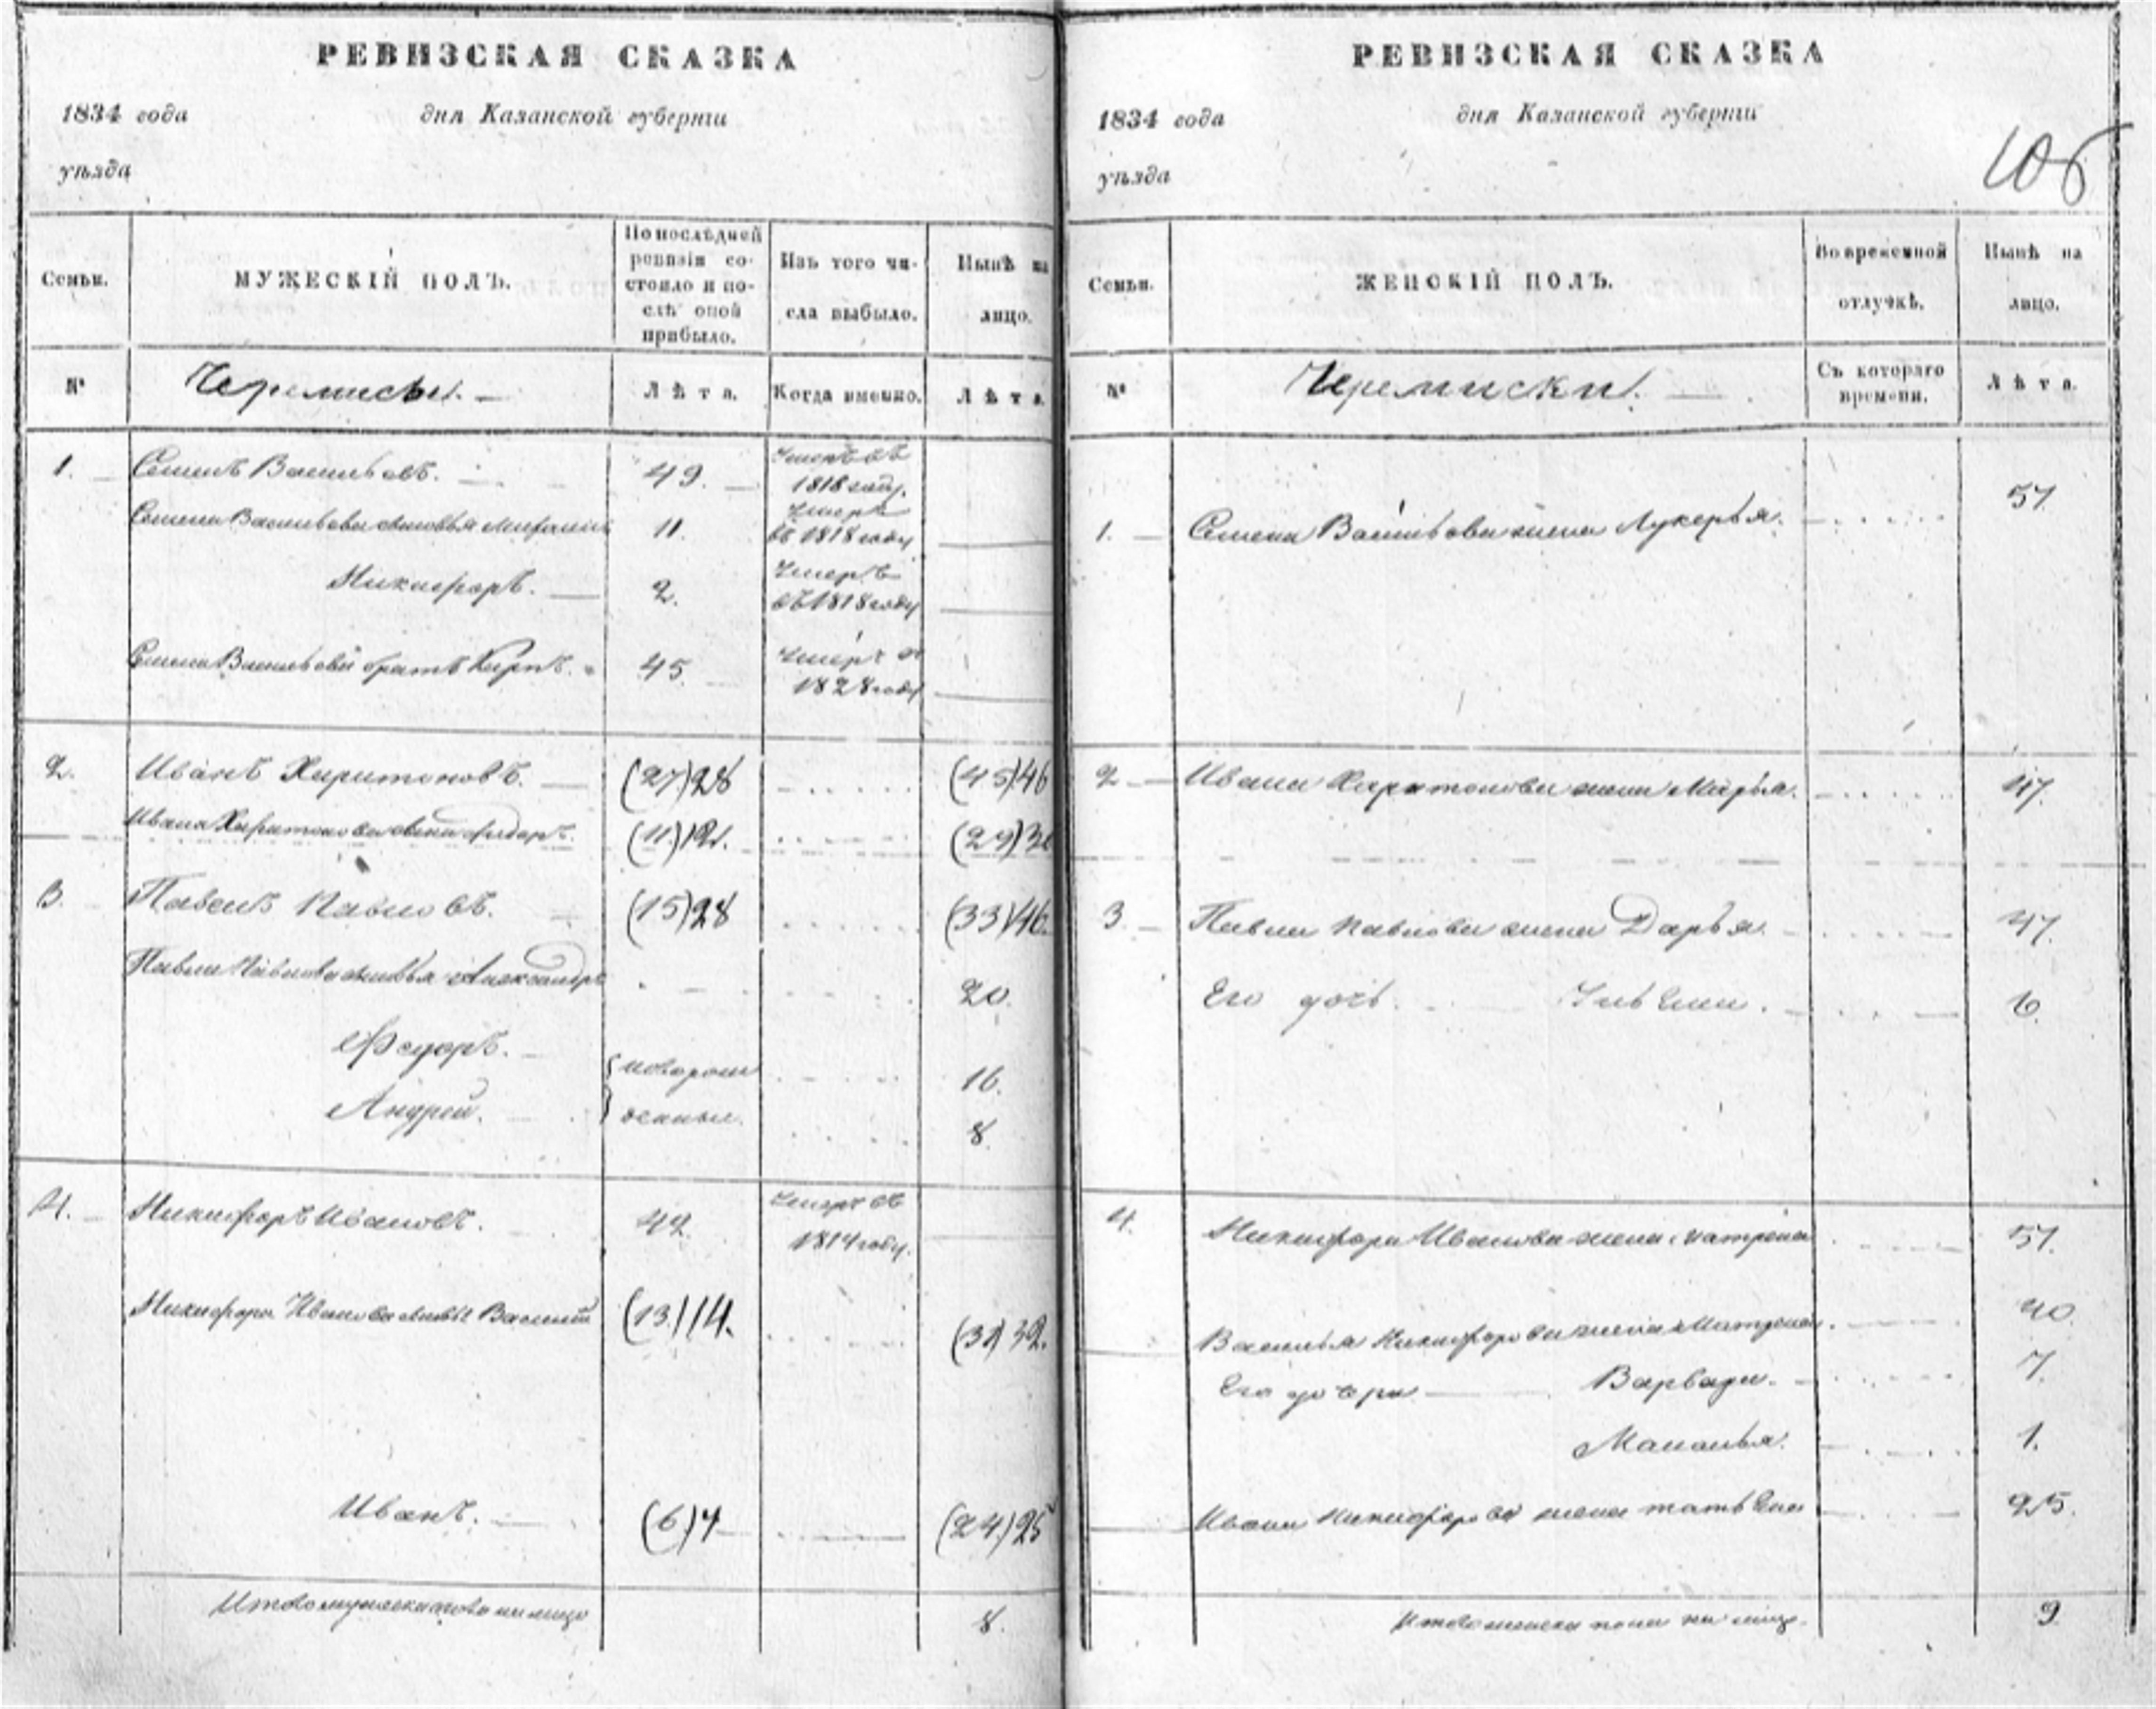 РЕВИЗСКАЯ СКАЗКА
1834 года дня Казанской губерніи
уѣзда
Семьи.
МУЖЕСКІЙ ПОЛЪ.
По послѣдней ревизіи состояло и послѣ оной прибыло.
Изъ того числа выбыло.
Нынѣ на лицо.
№
Черемисы.
Лѣта.
Когда именно.
Лѣта.
1. Семенъ Васильевъ. 49. Умеръ въ 1818 году.
Семена Васильева сыновья 11. Умеръ въ 1818 году
Никифоръ. 2. Умеръ въ 1818 году
Семена Васильева братъ Карпъ. 45. Умеръ въ 1828 году
2. Иванъ Харитоновъ. (27)28 (45)46
Ивана Харитонова сынъ Федоръ. (11)12. (29)30
3. Павелъ Павловъ. (15)28 (33)46.
Павла Павлова сыновья Александръ 20.
Федоръ. 16.
новорожденные.
Андрей. 8
4. Никифоръ Ивановъ. 42 Умеръ въ 1814 году.
Никифора Иванова сыновья Василій (13)14. (31)32.
Иванъ. (6)7 (24)25
Итого мужеска пола на лицо 8.
РЕВИЗСКАЯ СКАЗКА
1834 года дня Казанской губерніи
уѣзда
106
Семьи.
ЖЕНСКІЙ ПОЛЪ.
Во временной отлучкѣ.
Нынѣ на лицо.
№
Черемиски.
Съ котораго времени.
Лѣта.
1. Семена Васильева жена Лукерья. 57
2 Ивана Харитонова жена Марья. 47.
3. Павла Павлова жена Дарья. 47.
Его дочь Ульяна. 6.
4. Никифора Иванова жена Матрена 57.
Василья Никифорова жена 40.
Его дочери Варвара. 7.
Маланья. 1.
Ивана Никифорова жена Татьяна 25.
Итого женска пола на лицо. 9